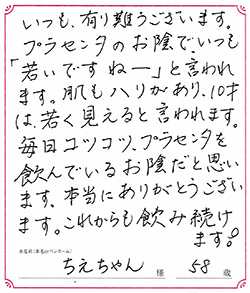 いつも、有り難うございます。
プラセンタのお陰で、いつも
「若いですねー」と言われ
ます。肌もハリがあり、10才
は、若く見えると言われます。
毎日コツコツ、プラセンタを
飲んでいるお陰だと思い
ます。本当にありがとうござい
ます。これからも飲み続け
ます。
お名前(本名orペンネーム)
ちえちゃん 様 58 歳